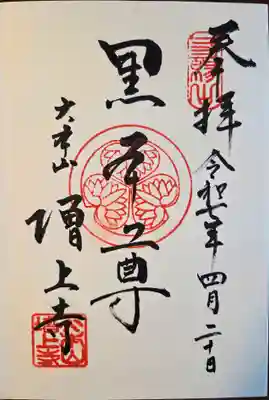 奉拝 令和七年四月二十日
三縁山
黒本尊
大本山 増上寺